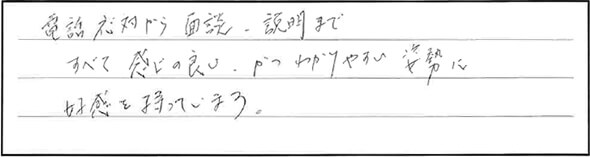 電話応対から面談、説明まで
すべて感じの良い、かつわかりやすい姿勢に
好感を持っています。